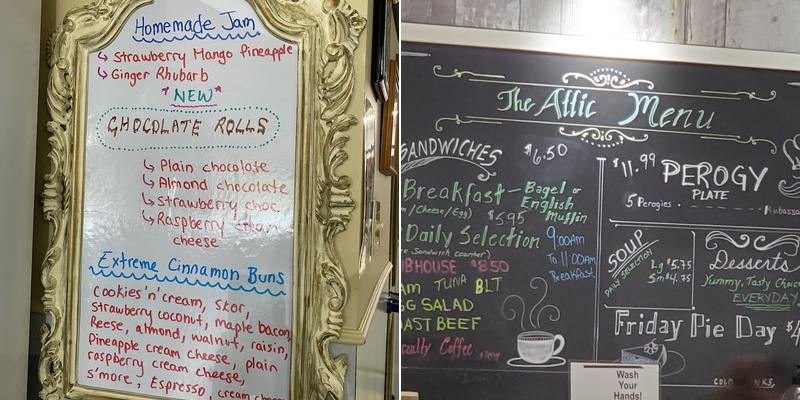 Homemade Jam
Strawberry Mango Pineapple
Ginger Rhubarb
"NEW"
CHOCOLATE ROLLS
Plain chocolate
Almond chocolate
Strawberry choc
Raspberry cream
cheese
Extreme Cinnamon Buns
Cookies'n'cream, Skor,
Strawberry coconut, maple bacon,
Reese, almond, walnut, raisin,
Pineapple cream cheese, plain
raspberry cream cheese,
s'more, Espresso, cream
The Attic Menu
SANDWICHES $6.50
Breakfast - Bagel or
English
Muffin
/Cheese/Egg) $5.95
Daily Selection
Sandwich counter)
9:00AM
To 11:00AM
Breakfast
UBHOUSE $8.50
AM TUNA BLT
GG SALAD
OAST BEEF
Coffee
$11.99 PEROGY
PLATE
5 Perogies
Kubassa
SOUP
DAILY SELECTION
Lg $5.75
Sm $4.75
Desserts
Yummy, Tasty Choice
EVERYDAY
Friday Pie Day
Wash
Your
Hands!